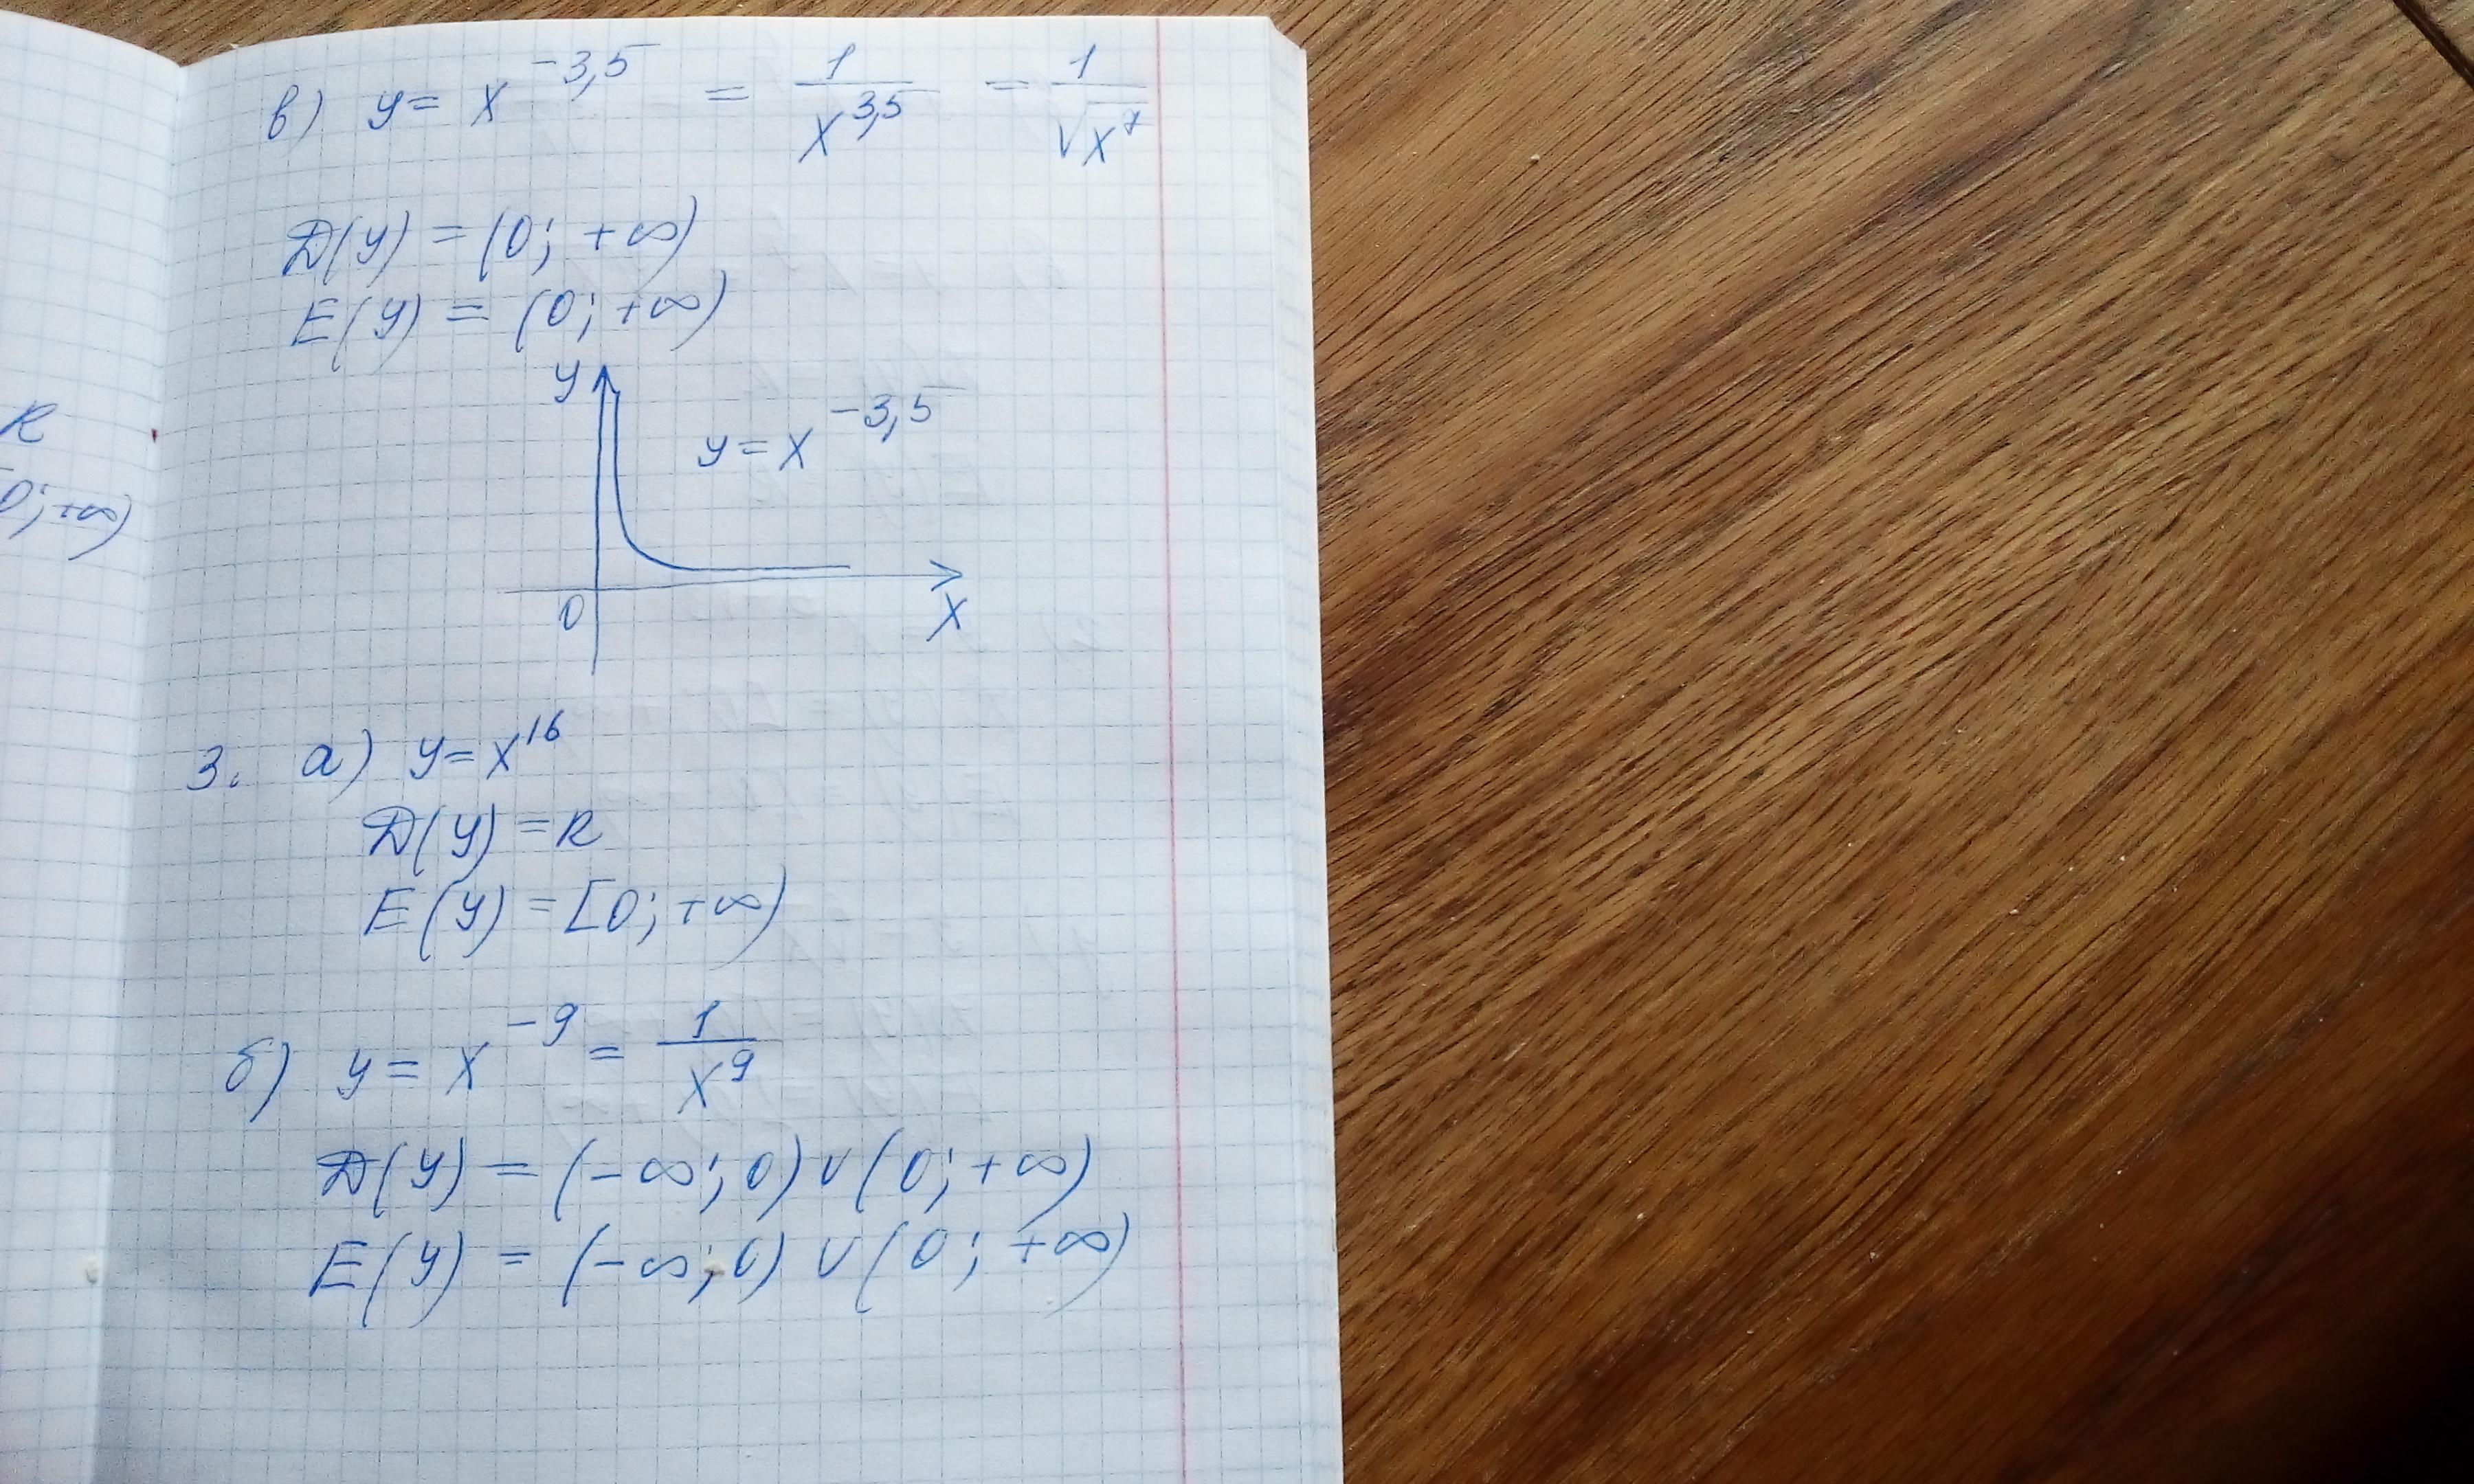 R
0; +∞)
в) y = x^-3,5 = 1/x^3,5 = 1/√x^7
D(y) = (0; +∞)
E(y) = (0; +∞)
y
y = x^-3,5
0
x
3. а) y = x^16
D(y) = R
E(y) = [0; +∞)
б) y = x^-9 = 1/x^9
D(y) = (-∞; 0) ∪ (0; +∞)
E(y) = (-∞; 0) ∪ (0; +∞)